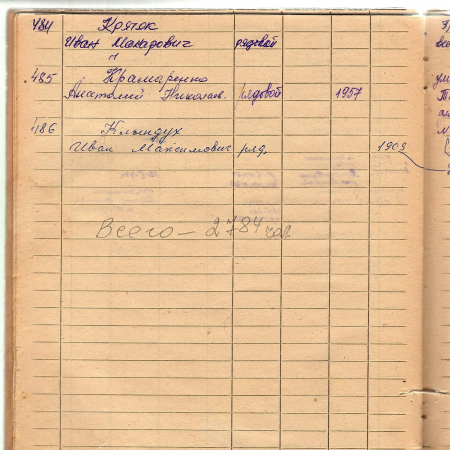 484 Кряток
Иван Макарович рядовой
"
485 Крамаренко
Анатолий Николаев. рядовой 1957
486 Клындух
Иван Максимович ряд. 1909
Всего — 2784 чел.